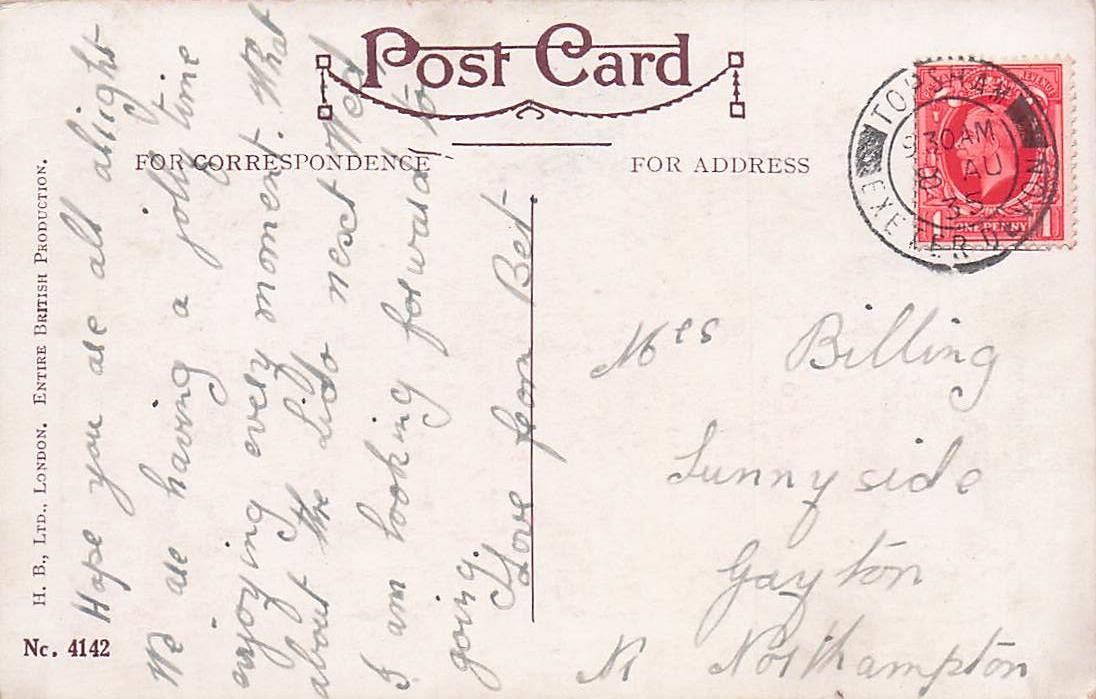 Post Card
FOR CORRESPONDENCE
FOR ADDRESS
TOPSHAM
9 30 AM
8 AU
35
EXETER DEVON
REVENUE
1 ONE PENNY 1
H. B., LTD., LONDON. ENTIRE BRITISH PRODUCTION.
Nc. 4142
Hope you are all alright
We are having a jolly time
enjoying every moment. What
about the Lido next Wed,
I am looking forward to
going.
Love from Bet
Mrs Billing
Sunnyside
Gayton
Nr Northampton